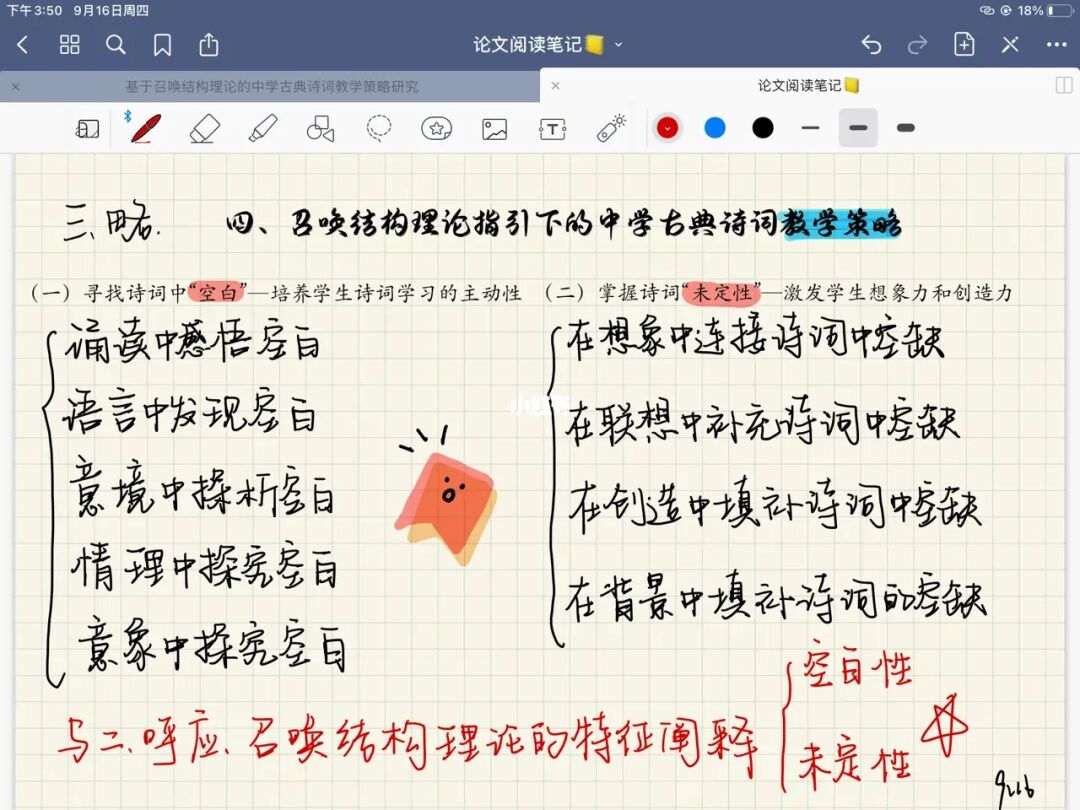 下午3:50 9月16日周四
18%
论文阅读笔记
基于召唤结构理论的中学古典诗词教学策略研究
论文阅读笔记
三、略. 四、召唤结构理论指引下的中学古典诗词教学策略
(一) 寻找诗词中“空白”—培养学生诗词学习的主动性
诵读中感悟空白
语言中发现空白
意境中探析空白
情理中探究空白
意象中探究空白
(二) 掌握诗词“未定性”—激发学生想象力和创造力
在想象中连接诗词中空缺
在联想中补充诗词中空缺
在创造中填补诗词中空缺
在背景中填补诗词的空缺
小红书
与二、呼应、召唤结构理论的特征阐释
空白性
未定性